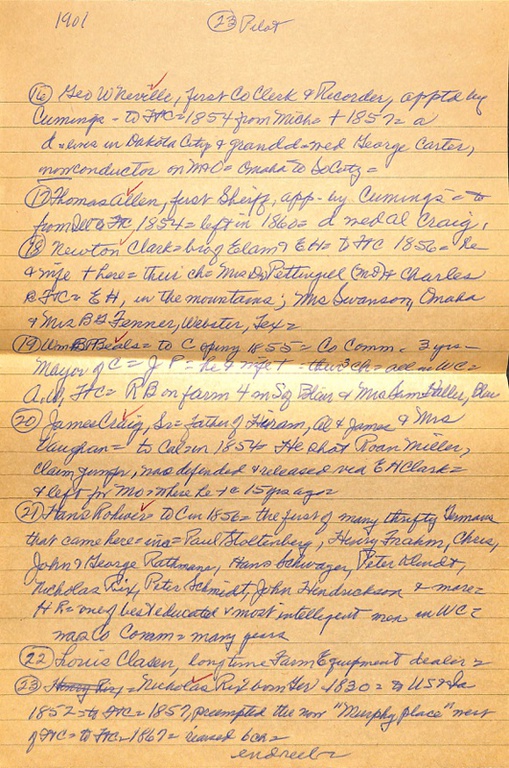 1901 (23) Pilot
(16) Geo W Neville, first Co Clerk & Recorder, apptd by
Cumings - to FtC = 1854 from Mich = + 1857 = a
d = lives in Dakota City & grandd = wed George Carter,
now conductor on MO = Omaha to SoCity =
(17) Thomas Allen, first Sheriff, app - by Cumings =
from to FtC, 1854 = left in 1860 = d wed Al Craig.
(18) Newton Clark = bro of Elam & EH = to FtC 1856 = he
& wife + here = their ch = Mrs Dr Pettingill (MO) & Charles
R FtC = EH, in the mountains; Mrs Swanson, Omaha
& Mrs BG Fenner, Webster, Tex =
(19) Wm B Beals = to C opng 1855 = Co Comm - 3 yrs =
Mayor of C = J P = he & wife + - their 3 ch = all in WC =
And, FtC = RB on farm 4 m SoBlair & Mrs Sam Haller, Blair
(20) James Craig, Sr = Father of Hiram, Al & James & Mrs
Vaughan = to Cal = in 1854 = He shot Roan Miller,
claim jumper, was defended & released via EH Clark =
& left for Mo = where he + c 15 yrs ago =
(21) Hans Rohwer = to C in 1856 = the first of many thrifty Germans
that came here = inc = Paul Stoltenberg, Henry Frahm, Chris,
John & George Rathmann, Hans Schwager, Peter Klindt,
Nicholas Rix, Peter Schmidt, John Hendrickson & more =
HR = one of best educated & most intelligent men in WC =
was Co Comm = many years
(22) Louis Clasen, longtime Farm Equipment dealer =
(23) Henry Rix = Nicholas Rix born Ger 1830 = to US & Ia
1852 = to FtC = 1857, preempted the now "Murphy place" west
of FtC = to FtC = 1867 = raised 6 ch =
end reel =